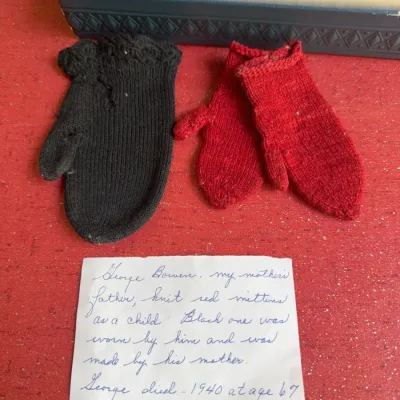 George Bowen - my mother's
father, knit red mittens
as a child. Black one was
worn by him and was
made by his mother.
George died - 1940 at age 67